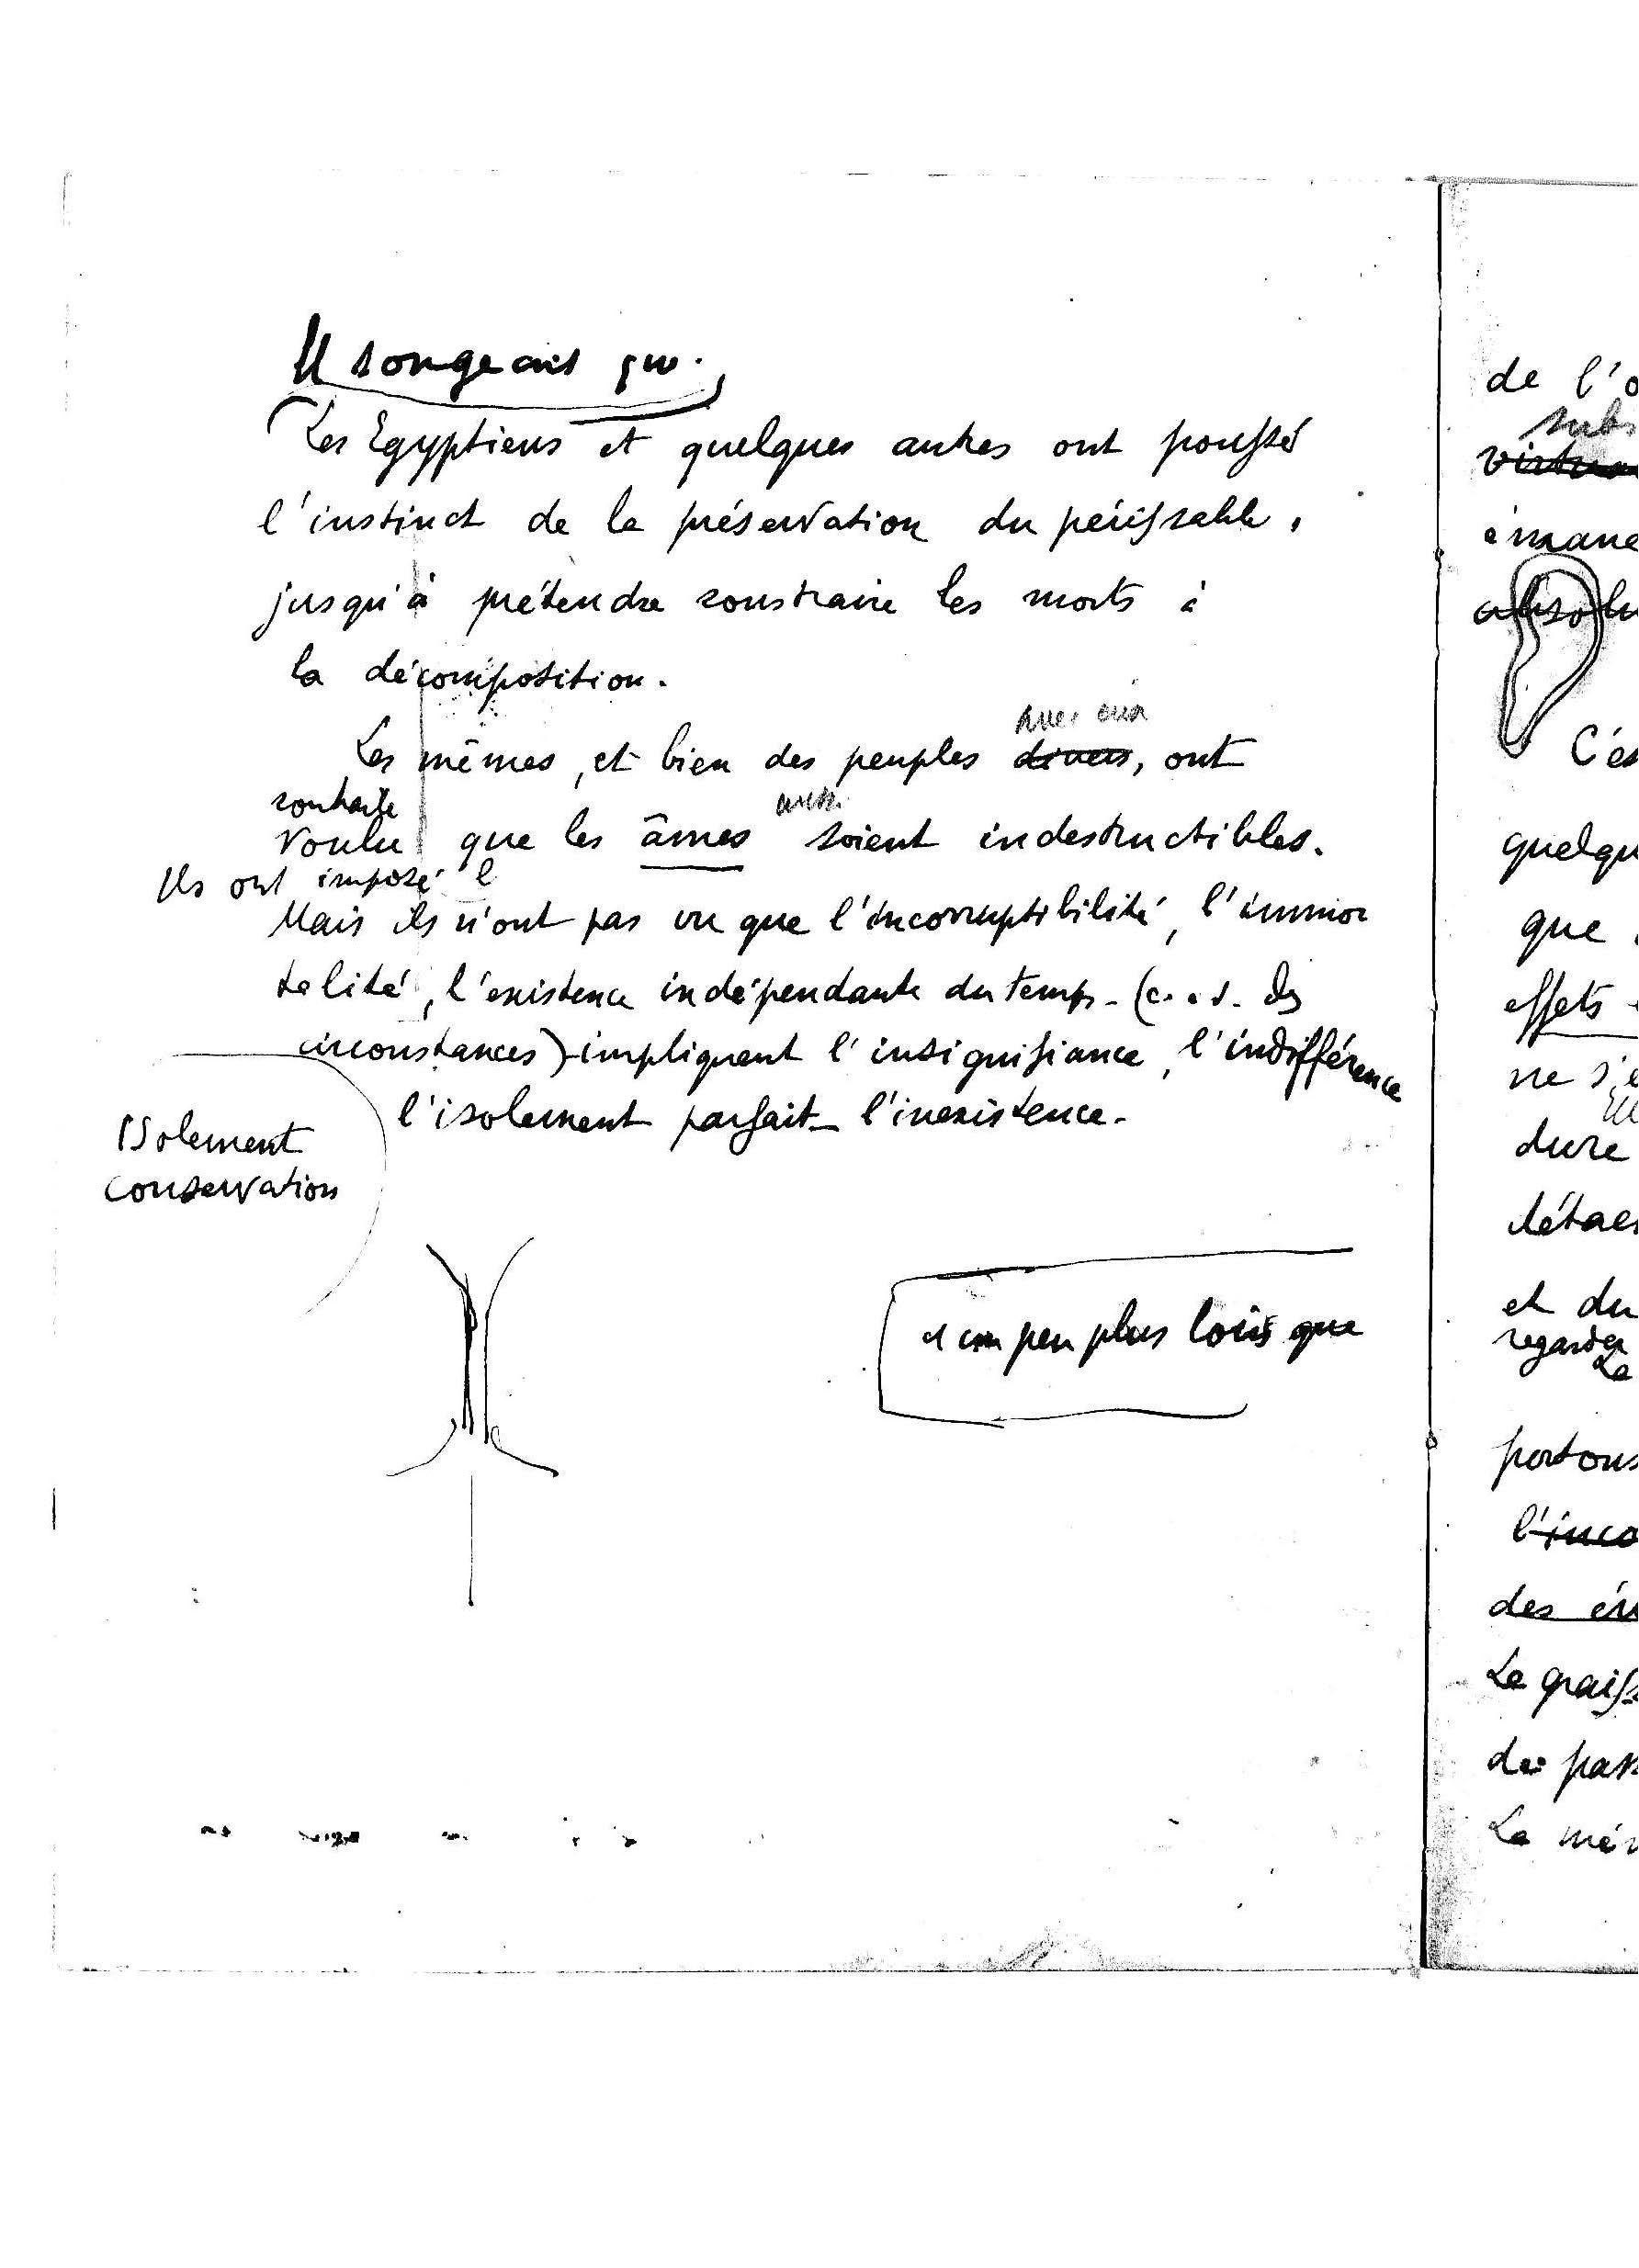 Il songeait que
Les Egyptiens et quelques autres ont poussé
l'instinct de la préservation du périssable,
jusqu'à prétendre soustraire les morts à
la décomposition.
avec eux
Les mêmes, et bien des peuples divers, ont
souhaité
aussi
voulu que les âmes soient indestructibles.
Ils ont imposé l
Mais ils n'ont pas vu que l'incorruptibilité, l'immor
talité, l'existence indépendante du temps - (c. à d. des
circonstances) - impliquent l'insignifiance, l'indifférence
l'isolement parfait - l'inexistence.
Isolement
conservation
un peu plus loin que
de l'o
subs
virtu
émane
absolu
C'es
quelqu
que
effets
ne s'e
dure
détac
et du
regarder
La
portons
l'inco
des év
La graiss
de pass
La mém